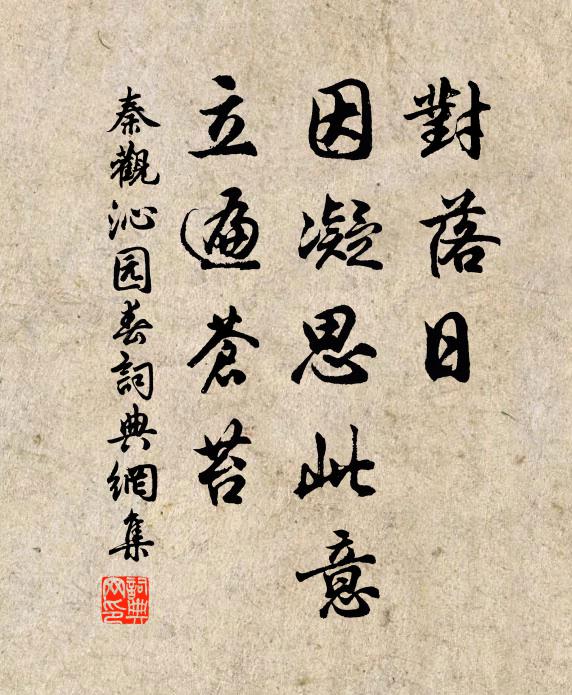 對落日
因凝思此意
立遍蒼苔
秦觀沁园春詞典網集
詞典
网印